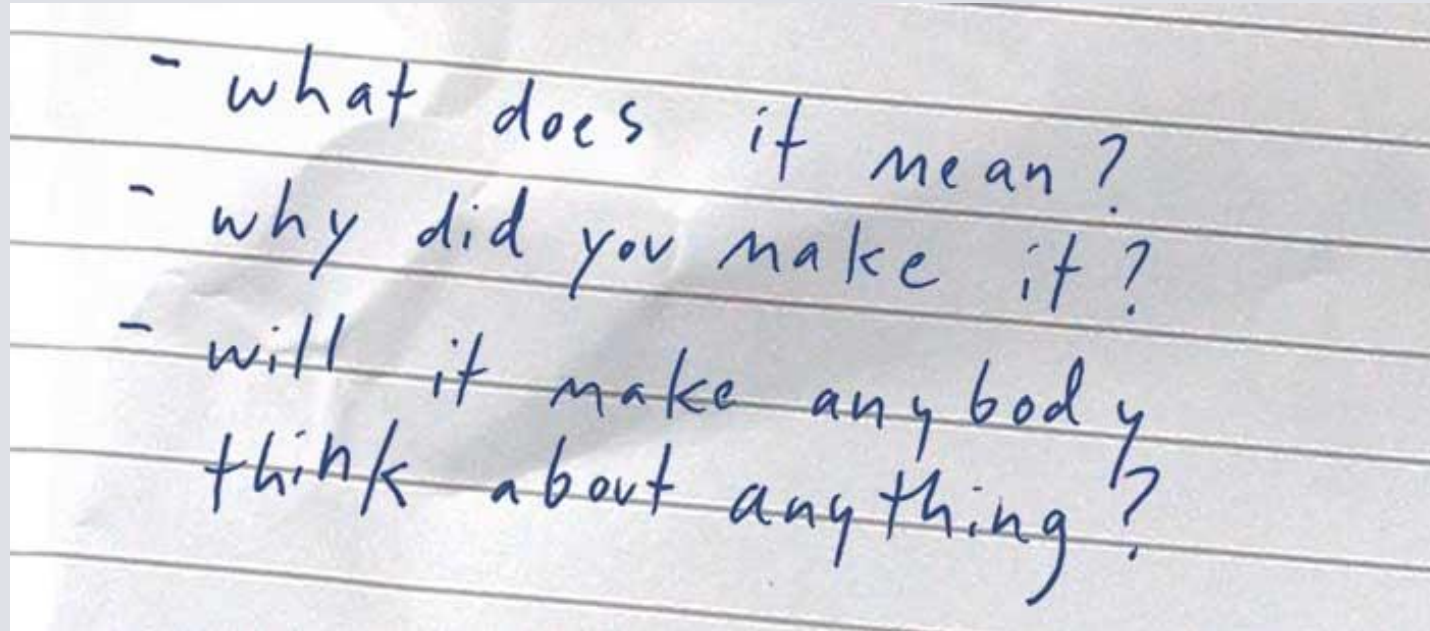 - what does it mean?
- why did you make it?
- will it make anybody
think about anything?